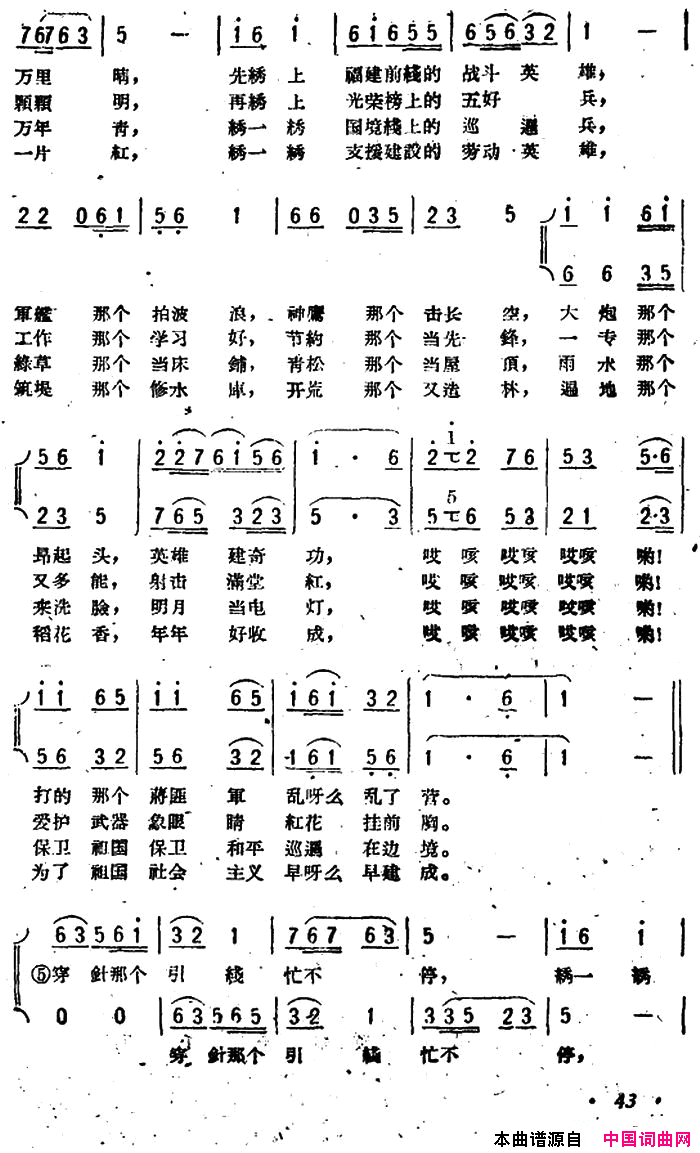 7 6 7 6 3 | 5 — | i 6 i | 6 i 6 5 5 | 6 5 6 3 2 | 1 — |
万里 晴， 先綉上 福建前綫的 战斗 英 雄，
顆顆 明， 再綉上 光荣榜上的 五好 兵，
万年 青， 綉一綉 国境綫上的 巡 邏 兵，
一片 紅， 綉一綉 支援建設的 劳动 英 雄，
2 2 0 6 1 | 5 6 1 | 6 6 0 3 5 | 2 3 5 | i i 6 i
6 6 3 5
軍艦 那个 拍波 浪， 神鷹 那个 击长 空， 大 炮 那个
工作 那个 学习 好， 节約 那个 当先 鋒， 一 专 那个
綠草 那个 当床 鋪， 青松 那个 当屋 頂， 雨 水 那个
筑堤 那个 修水 庫， 开荒 那个 又造 林， 遍 地 那个
5 6 i | 2 2 7 6 i 5 6 | i · 6 | 2 i 2 7 6 | 5 3 5·6
2 3 5 | 7 6 5 3 2 3 | 5 · 3 | 5 5 6 5 3 | 2 1 2·3
昂起 头， 英雄 建奇 功， 哎 咳 哎咳 哎咳 喲！
又多 能， 射击 滿堂 紅， 哎 咳 哎咳 哎咳 喲！
来洗 臉， 明月 当电 灯， 哎 咳 哎咳 哎咳 喲！
稻花 香， 年年 好收 成， 哎 咳 哎咳 哎咳 喲！
i i 6 5 | i i 6 5 | i 6 i 3 2 | 1 · 6 | 1 —
5 6 3 2 | 5 6 3 2 | 1 6 1 5 6 | 1 · 6 | 1 —
打的 那个 蔣匪 軍 乱呀么 乱了 营。
爱护 武器 象眼 睛 紅花 挂前 胸。
保卫 祖国 保卫 和平 巡邏 在边 境。
为了 祖国 社会 主义 早呀么 早建 成。
6 3 5 6 i | 3 2 1 | 7 6 7 6 3 | 5 — | i 6 i
⑤穿 針那个 引 綫 忙不 停， 綉一 綉
0 0 | 6 3 5 6 5 | 3 2 1 | 3 3 5 2 3 | 5 —
穿 針那个 引 綫 忙不 停，
· 43 ·
本曲谱源自 中国词曲网